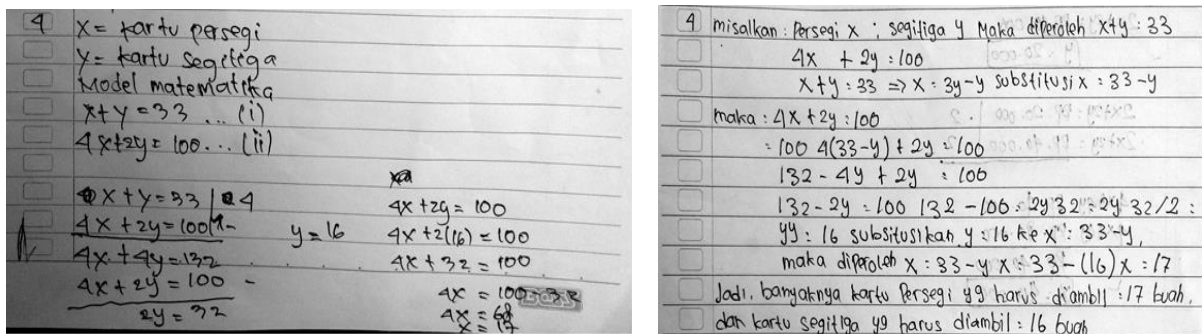 4
x = kartu persegi
y = kartu segitiga
Model matematika
x + y = 33 ... (i)
4x + 2y = 100 ... (ii)
x + y = 33 | 4
4x + 2y = 100 | 1 -
4x + 4y = 132
4x + 2y = 100 -
2y = 32
y = 16
4x + 2y = 100
4x + 2(16) = 100
4x + 32 = 100
4x = 100 - 32
4x = 68
x = 17
4
misalkan : Persegi x ; segitiga y Maka diperoleh x+y : 33
4x + 2y : 100
x+y : 33 => x : 3y-y substitusi x : 33-y
maka : 4x + 2y : 100
= 100 4(33-y) + 2y = 100
132 - 4y + 2y : 100
132 - 2y : 100 132 - 100 : 2y 32 : 2y 32/2 :
yy : 16 subsitusikan y : 16 ke x : 33-y,
maka diperoleh x : 33-y x : 33-(16) x : 17
Jadi, banyaknya kartu Persegi yg harus diambil : 17 buah,
dan kartu segitiga yg harus diambil : 16 buah